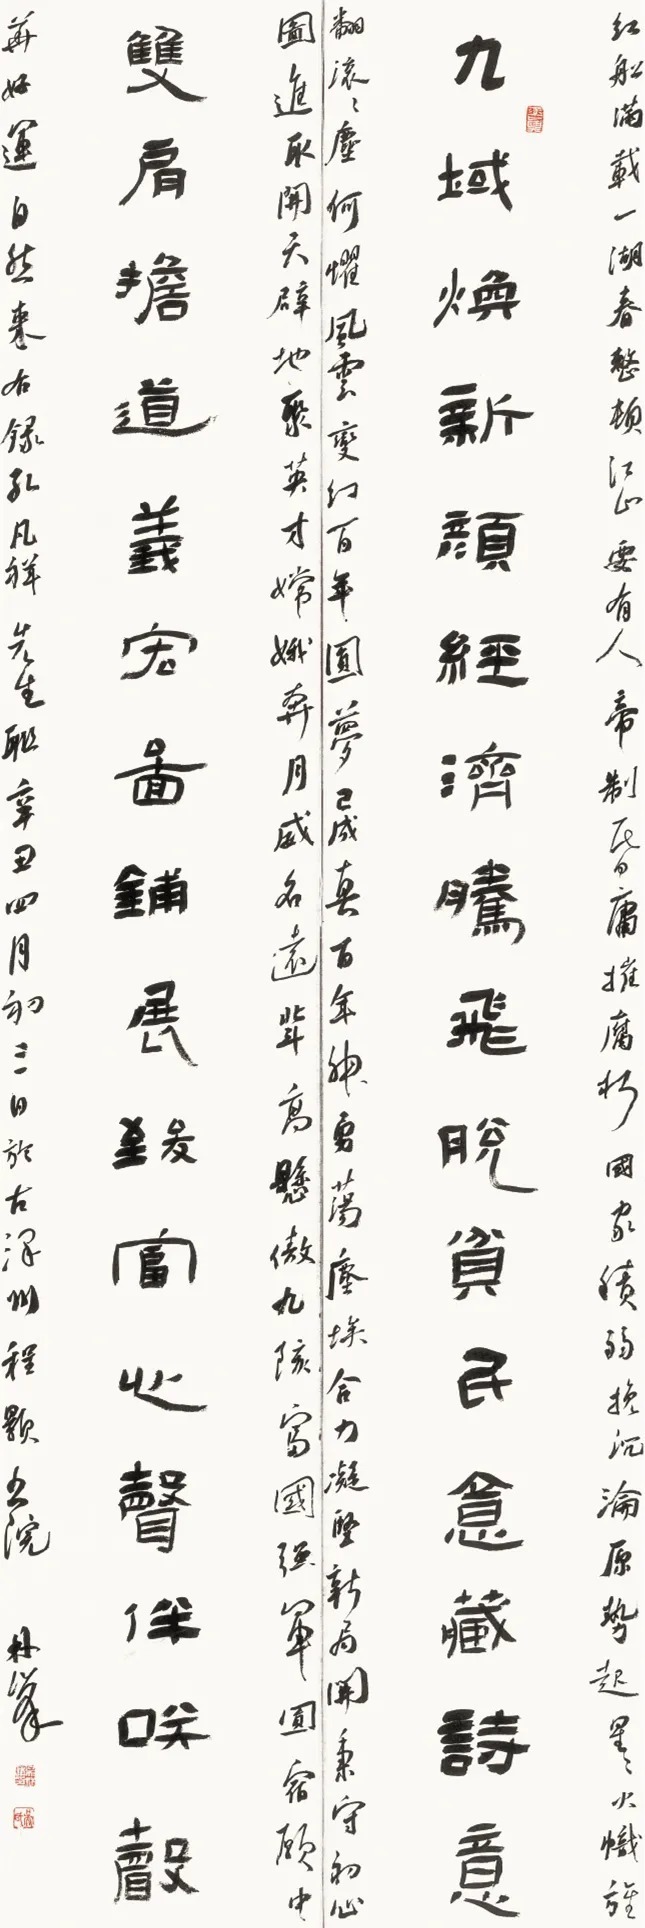 紅船滿載一湖春整頓江山要有人帝制昏庸摧腐朽國家積弱挽沉淪原勢起星〻火幟旌
九域煥新顏經濟騰飛脫貧民意藏詩意
翻滾〻塵何懼風雲變幻百年圓夢已成真百年神勇蕩塵埃合力凝聖新局開秉守初心
圖進取開天辟地聚英才嫦娥奔月威名遠舉高懸傲九陔富國強軍圓宿願中
雙肩擔道義宏圖鋪展致富心聲伴咲聲
華好運自然來右錄孔凡祥先生聯辛丑四月初三日於古澤州程顥書院